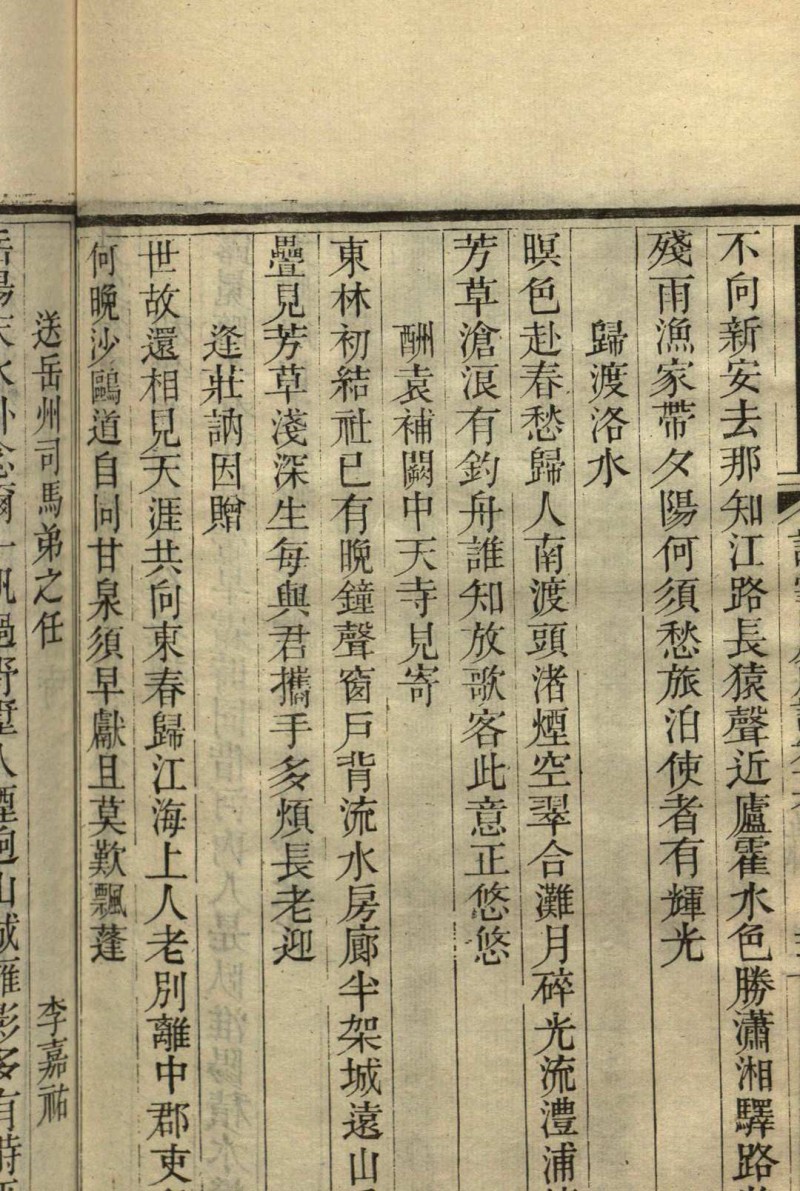 不向新安去那知江路長猿聲近廬霍水色勝瀟湘驛路
殘雨漁家帶夕陽何須愁旅泊使者有輝光
歸渡洛水
暝色赴春愁歸人南渡頭渚煙空翠合灘月碎光流澧浦
芳草滄浪有釣舟誰知放歌客此意正悠悠
酬袁補闕中天寺見寄
東林初結社已有晚鐘聲窗戶背流水房廊半架城遠山
疊見芳草淺深生每與君攜手多煩長老迎
逢莊訥因贈
世故還相見天涯共向東春歸江海上人老別離中郡吏
何晚沙鷗道自同甘泉須早獻且莫歎飄蓬
送岳州司馬弟之任 李嘉祐